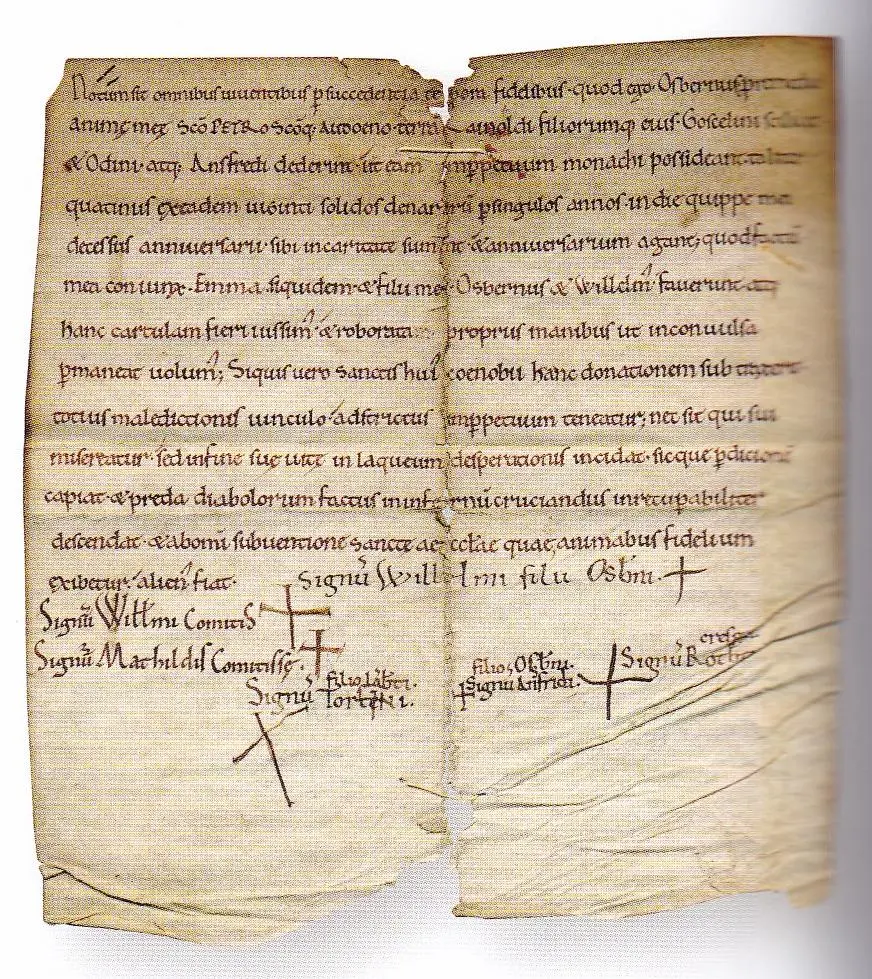 Notum sit omnibus uiuentibus ꝑ succedentia te pora fidelibus · quod ego Osbernus pro
animę meę Scō PETRO Scōq; Audoeno terrā Ainoldi filiorumq; eius · Goscelini
& Odini atq; Ansfredi dederim · ut eam inꝑpetuum monachi possideant ·
quatinus ex eadem uiginti solidos denar iorū ꝑ singulos annos · in die quippe mei
decessus anniuersarii · sibi in caritate sum & anniuersarium agant; quod
mea coniunx · Emma siquidem · & filii mei Osbernus & Willelm' fauerunt atq;
hanc cartulam fieri iussim' · & roborata propriis manibus ut inconuulsa
ꝑmaneat uolum'; Siquis uero sanctis hui' coenobii hanc donationem sub
totius maledictionis uinculo · adstrictus inꝑpetuum teneatur; nec sit qui sui
misereatur · sed in fine suę uitę in laqueum desperationis incidat · sicque ꝑditionē
capiat · & preda diabolorum factus in infernū cruciandus inrecuꝑabiliter
descendat · & ab omī subuentione sanctę aecclae quae animabus fidelium
exibetur · alien' fiat ·
Signū Willelmi filii Osbrni · +
Signū Willmi Comitis +
Signū Mathildis Comitissę · +
Signū Torteni ·
filii Osbrni ·
+ Signū Anfridi · +
Signū